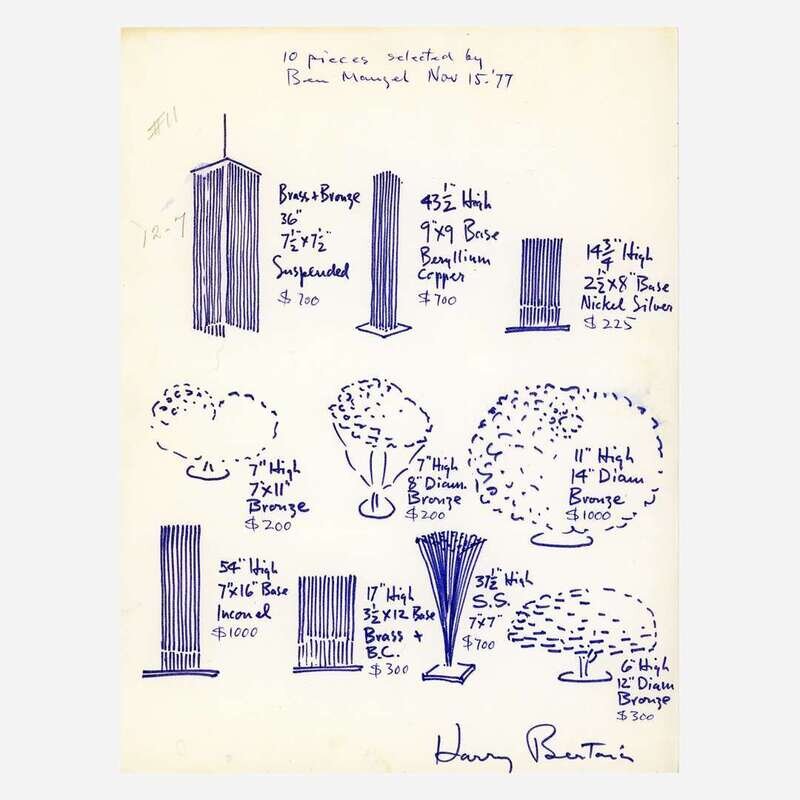 10 pieces selected by
Ben Mangel Nov 15.'77
#11
12-7
Brass + Bronze
36"
7½"x7½"
Suspended
$700
43½" High
9"x9 Base
Beryllium
Copper
$700
14¾" High
2½"x8" Base
Nickel Silver
$225
7" High
7"x11"
Bronze
$200
7" High
8" Diam.
Bronze
$200
11" High
14" Diam
Bronze
$1000
54" High
7"x16" Base
Inconel
$1000
17" High
3½x12 Base
Brass +
B.C.
$300
37½" High
S.S.
7"x7"
$700
6" High
12" Diam
Bronze
$300
Harry Bertoia